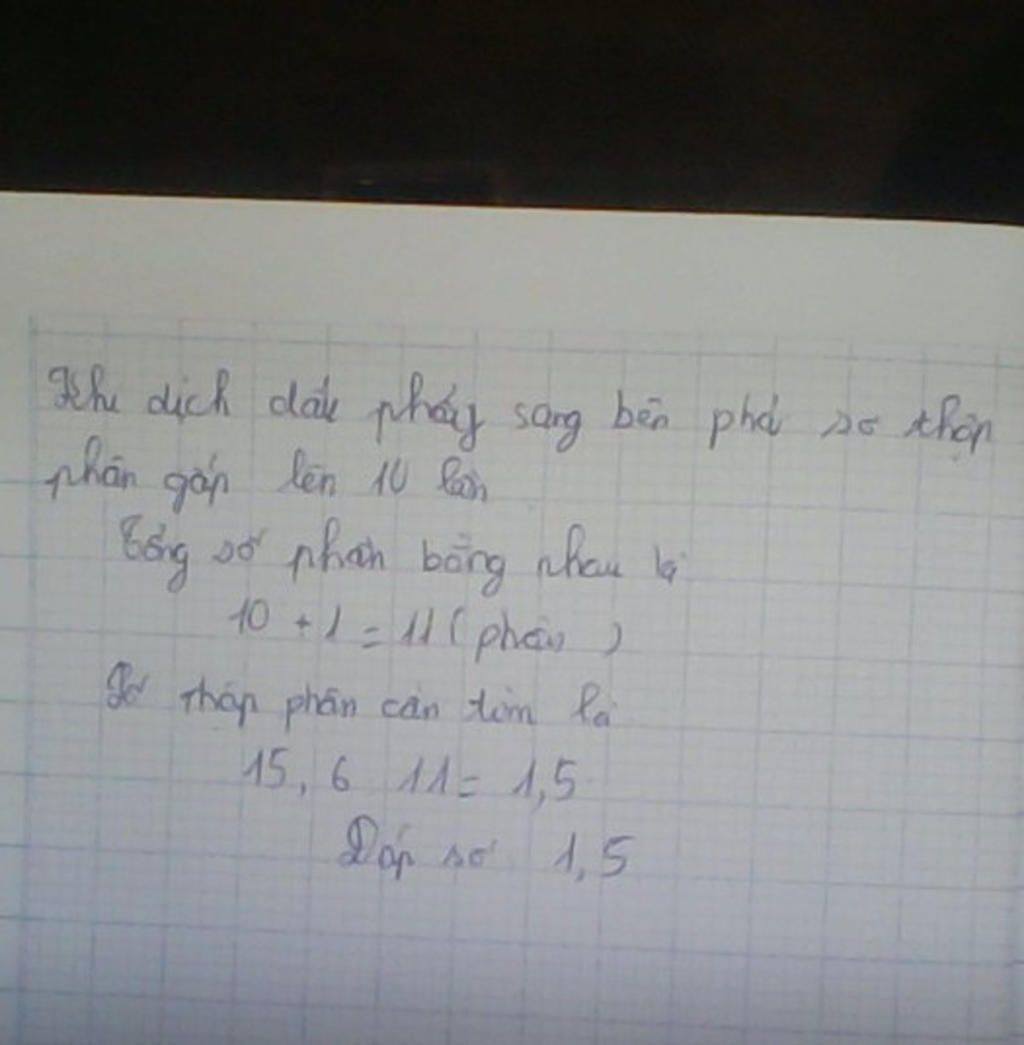 Khi dịch dấu phẩy sang bên phả số thập
phân gấp lên 10 lần
Tổng số phần bằng nhau là
10 + 1 = 11 ( phần )
Số thập phân cần tìm là
15, 6 11 = 1,5
Đáp số 1,5